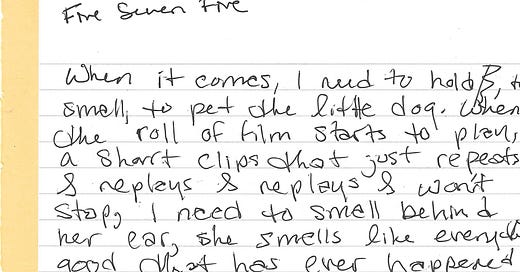 Five Seven Five
When it comes, I need to hold, to
smell, to pet the little dog. When
the roll of film starts to play,
a short clips that just repeats
& replays & replays & won't
stop, I need to smell behind
her ear, she smells like everyth
good that has ever happened